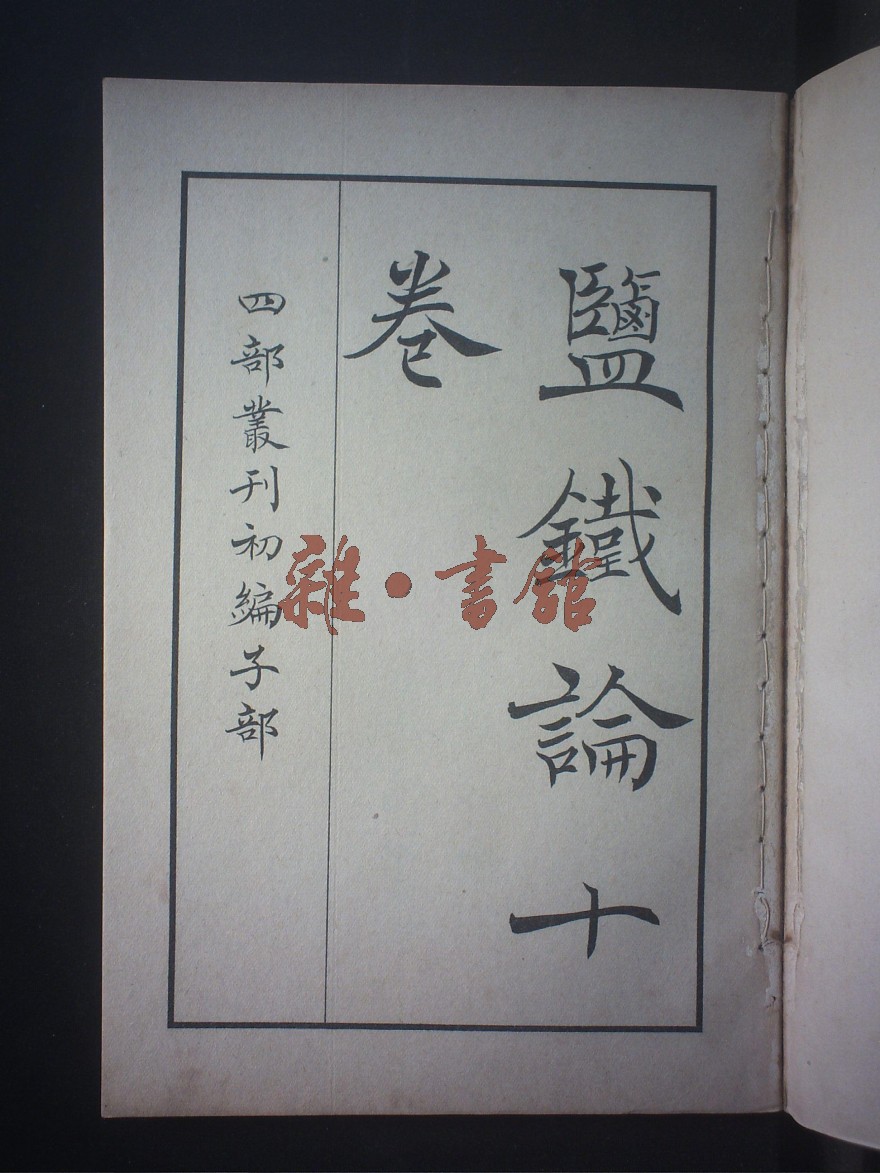 鹽鐵論十
卷
四部叢刊初編子部
雜·書館